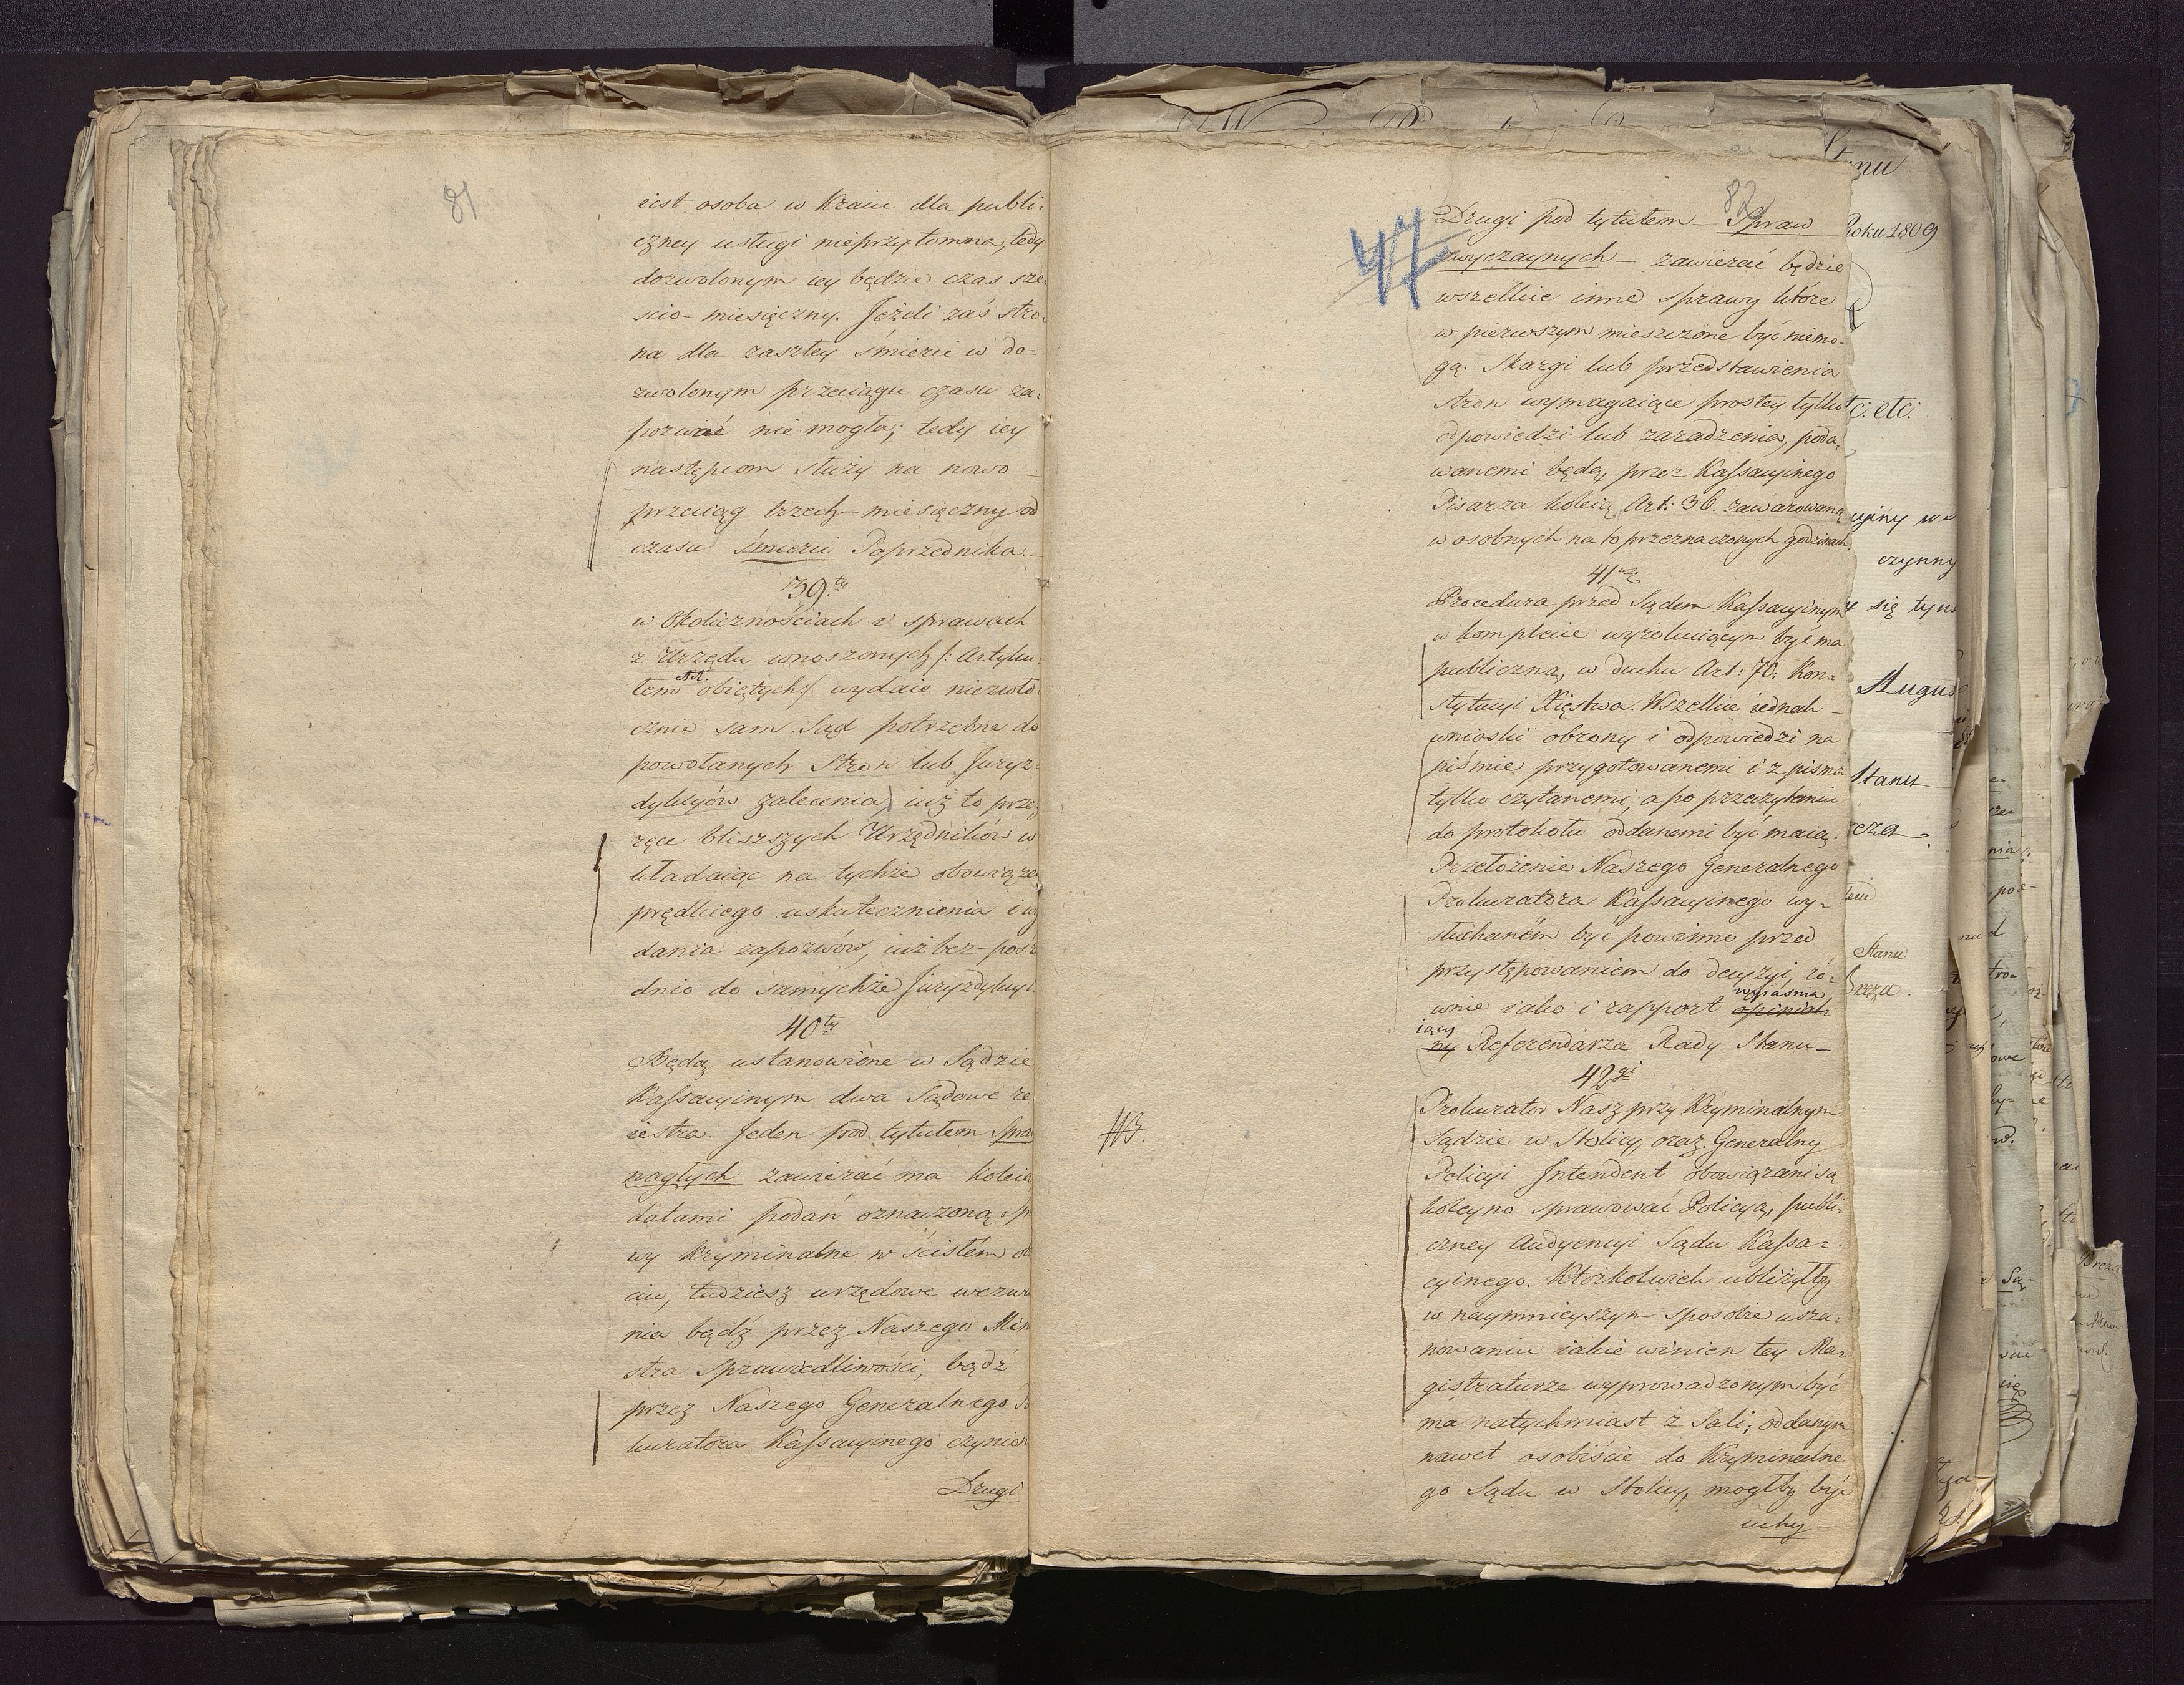 81
iest osoba w Kraiu dla publi:
czney usługi nieprzytomna, tedy
dozwolonym iey będzie czas sze:
scio-miesięczny. Jeżeli zaś stro:
na dla zaszłey śmierci w do=
zwolonym przeciągu czasu za:
pozwać nie mogła; tedy iey
następcom służy na nowo
przeciąg trzech-miesięczny od
czasu śmierci Poprzednika.
39.ty
w Okolicznościach i sprawach
z Urzędu wnoszonych /: Artyku:
łem obiętych :/ wydaie niezwło
cznie sam Sąd potrzebne do
powołanych Stron lub Juryz:
dykcyów zalecenia, iuż to przez
ręce bliższych Urzędników w
kładaiąc na tychże obowiąze
prędkiego uskutecznienia i wy
dania zapozwów, iuż bez-pośr
dnio do samychże Juryzdykcyi.
40ty
Będą ustanowione w Sądzie
Kassacyinym dwa Sądowe re
iestra. Jeden pod tytułem Spra
nagłych zawierać ma koleią
datami podań oznaczoną spr
wy Kryminalne w ścisłém ob
ciu, tudziesz urzędowe wezwa
nia bądź przez Naszego Mini
stra Sprawiedliwości, bądź
przez Naszego Generalnego Pr
kuratora Kassacyinego czynion
Drugi
82
47
Drugi pod tytułem – Spraw
zwyczaynych – zawierać będzie
wszelkie inne sprawy które
w pierwszym mieszczone być niemo:
gą. Skargi lub przedstawienia
stron wymagaiące prostey tylko
odpowiedzi lub zaradzenia, poda:
wanemi będą przez Kassacyinego
Pisarza koleią Art: 36. zawarowaną
w osobnych na to przeznaczonych godzinach.
41
Procedura przed Sądem Kassacyinym
w komplecie wyrokuiącym być ma
publiczną, w duchu Art: 70: Kon:
stytucyi Xięstwa. Wszelkie iednak
wnioski obrony i odpowiedzi na
piśmie przygotowanemi i z pisma
tylko czytanemi, a po przeczytaniu
do protokołu oddanemi być maią.
Przełożenie Naszego Generalnego
Prokuratora Kassacyinego wy=
słuchaném być powinno przed
przystępowaniem do decyzyi, ró:
wnie iako i rapport opinial wyiaśnia
ny iący Referendarza Rady Stanu
42gi
Prokurator Nasz przy Kryminalnym
Sądzie w Stolicy, oraz Generalny
Policyi Intendent obowiązani są
koleyno sprawować Policyą, publi:
czney Audyencyi Sądu Kassa=
cyinego. Ktożkolwiek ubliżyłby
w naymnieyszym sposobie usza:
nowaniu iakie winien tey Ma:
gistraturze wyprowadzonym być
ma natychmiast z Sali; oddanym
nawet osobiście do Kryminalne
go Sądu w Stolicy, mogłby być
uchy
Roku 1809
etc:
czynny
się tym
Stanu
Stanu